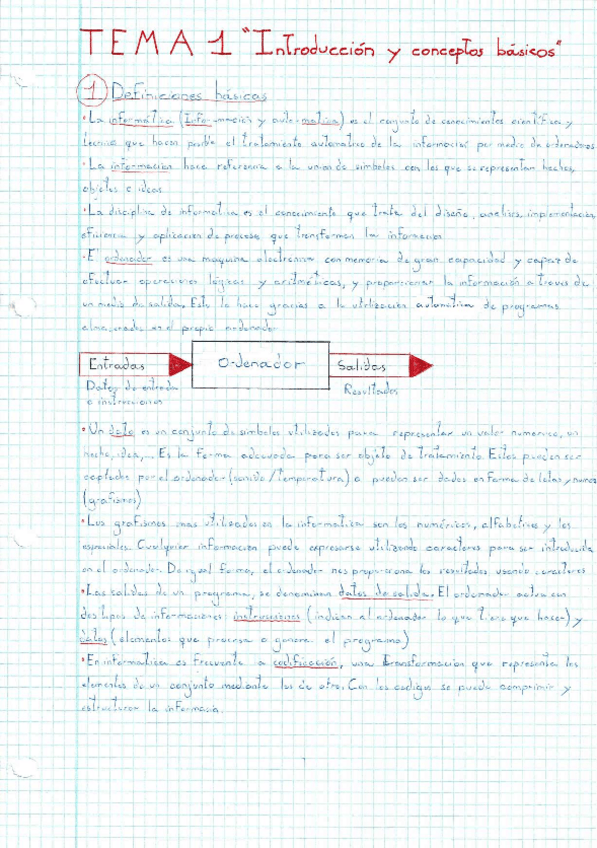 TEMA 1 "Introducción y conceptos básicos"
1 Definiciones básicas
• La informática (Información y auto-matica) es el conjunto de conocimientos científica y
técnica que hacen posible el tratamiento automatico de la informacion por medio de ordenadores
• La informacion hace referencia a la union de simbolos con los que se representan hechos,
objetos e ideas
• La disciplina de informatica es el conocimiento que trata del diseño, analisis, implementación,
eficiencia y aplicacion de procesos que transforman la informacion
• El ordenador es una maquina electronica con memoria de gran capacidad y capaz de
efectuar operaciones lógicas y aritméticas, y proporcionar la información a traves de
un medio de salida. Esto lo hace gracias a la utilización automática de programas
en el propio ordenador
Entradas Ordenador Salidas
Datos de entrada Resultados
o instrucciones
• Un dato es un conjunto de simbolos utilizados para representar un valor numerico, un
hecho, idea,... Es la forma adecuada para ser objeto de tratamiento. Estos pueden ser
captados por el ordenador (sonido/temperatura) o pueden ser dados en forma de letras y numeros
(grafismos)
• Los grafismos mas utilizados en la informatica son los numéricos, alfabeticos y los
especiales. Cualquier informacion puede expresarse utilizando caracteres para ser introducida
en el ordenador. De igual forma, el ordenador nos proporciona los resultados usando caracteres
• Las salidas de un programa, se denominan datos de salida. El ordenador actua con
dos tipos de informaciones instrucciones (indican al ordenador lo que tiene que hacer) y
datos (elementos que procesa o genera el programa)
• En informatica es frecuente la codificación, una transformacion que representa los
elementos de un conjunto mediante los de otro. Con los codigos se puede comprimir y
estructurar la informacion.